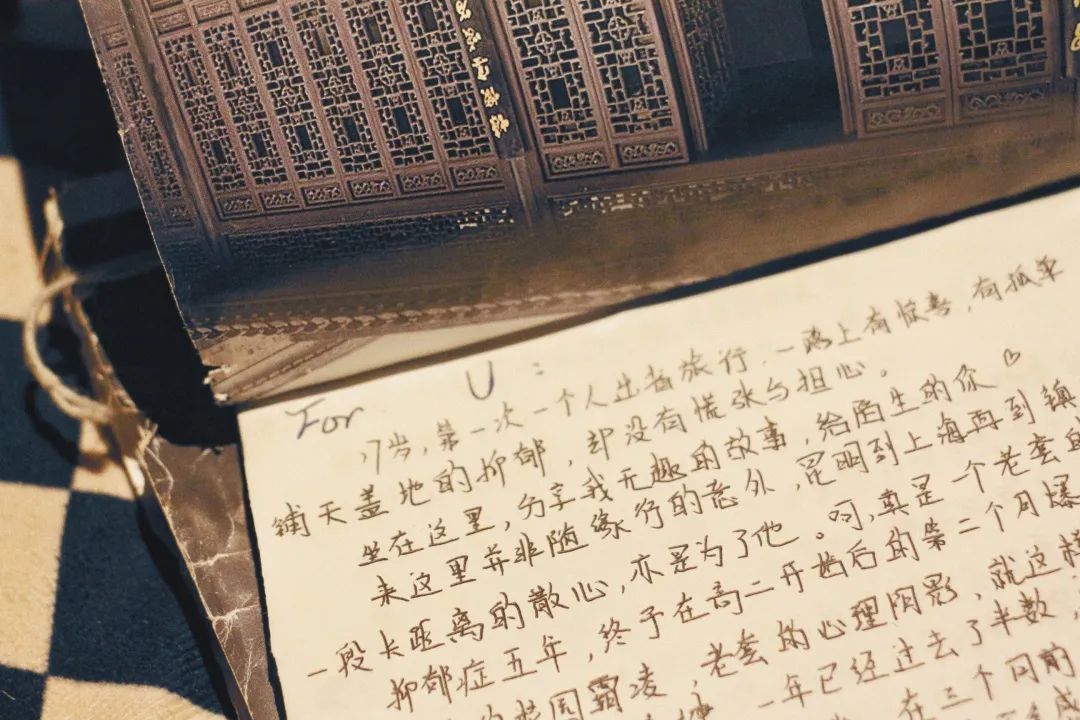 For U:
17岁,第一次一个人出省旅行.一路上有惊喜,有孤单
铺天盖地的抑郁,却没有慌张与担心。
坐在这里,分享我无趣的故事,给陌生的你♡
来这里并非随缘行的意外,昆明到上海再到镇
一段长距离的散心,亦是为了他。呵,真是一个老套的
抑郁症五年,终于在高二开始后的第二个月爆
校园霸凌,老套的心理阴影,就这样
一年已经过去了半数,
在三个月前